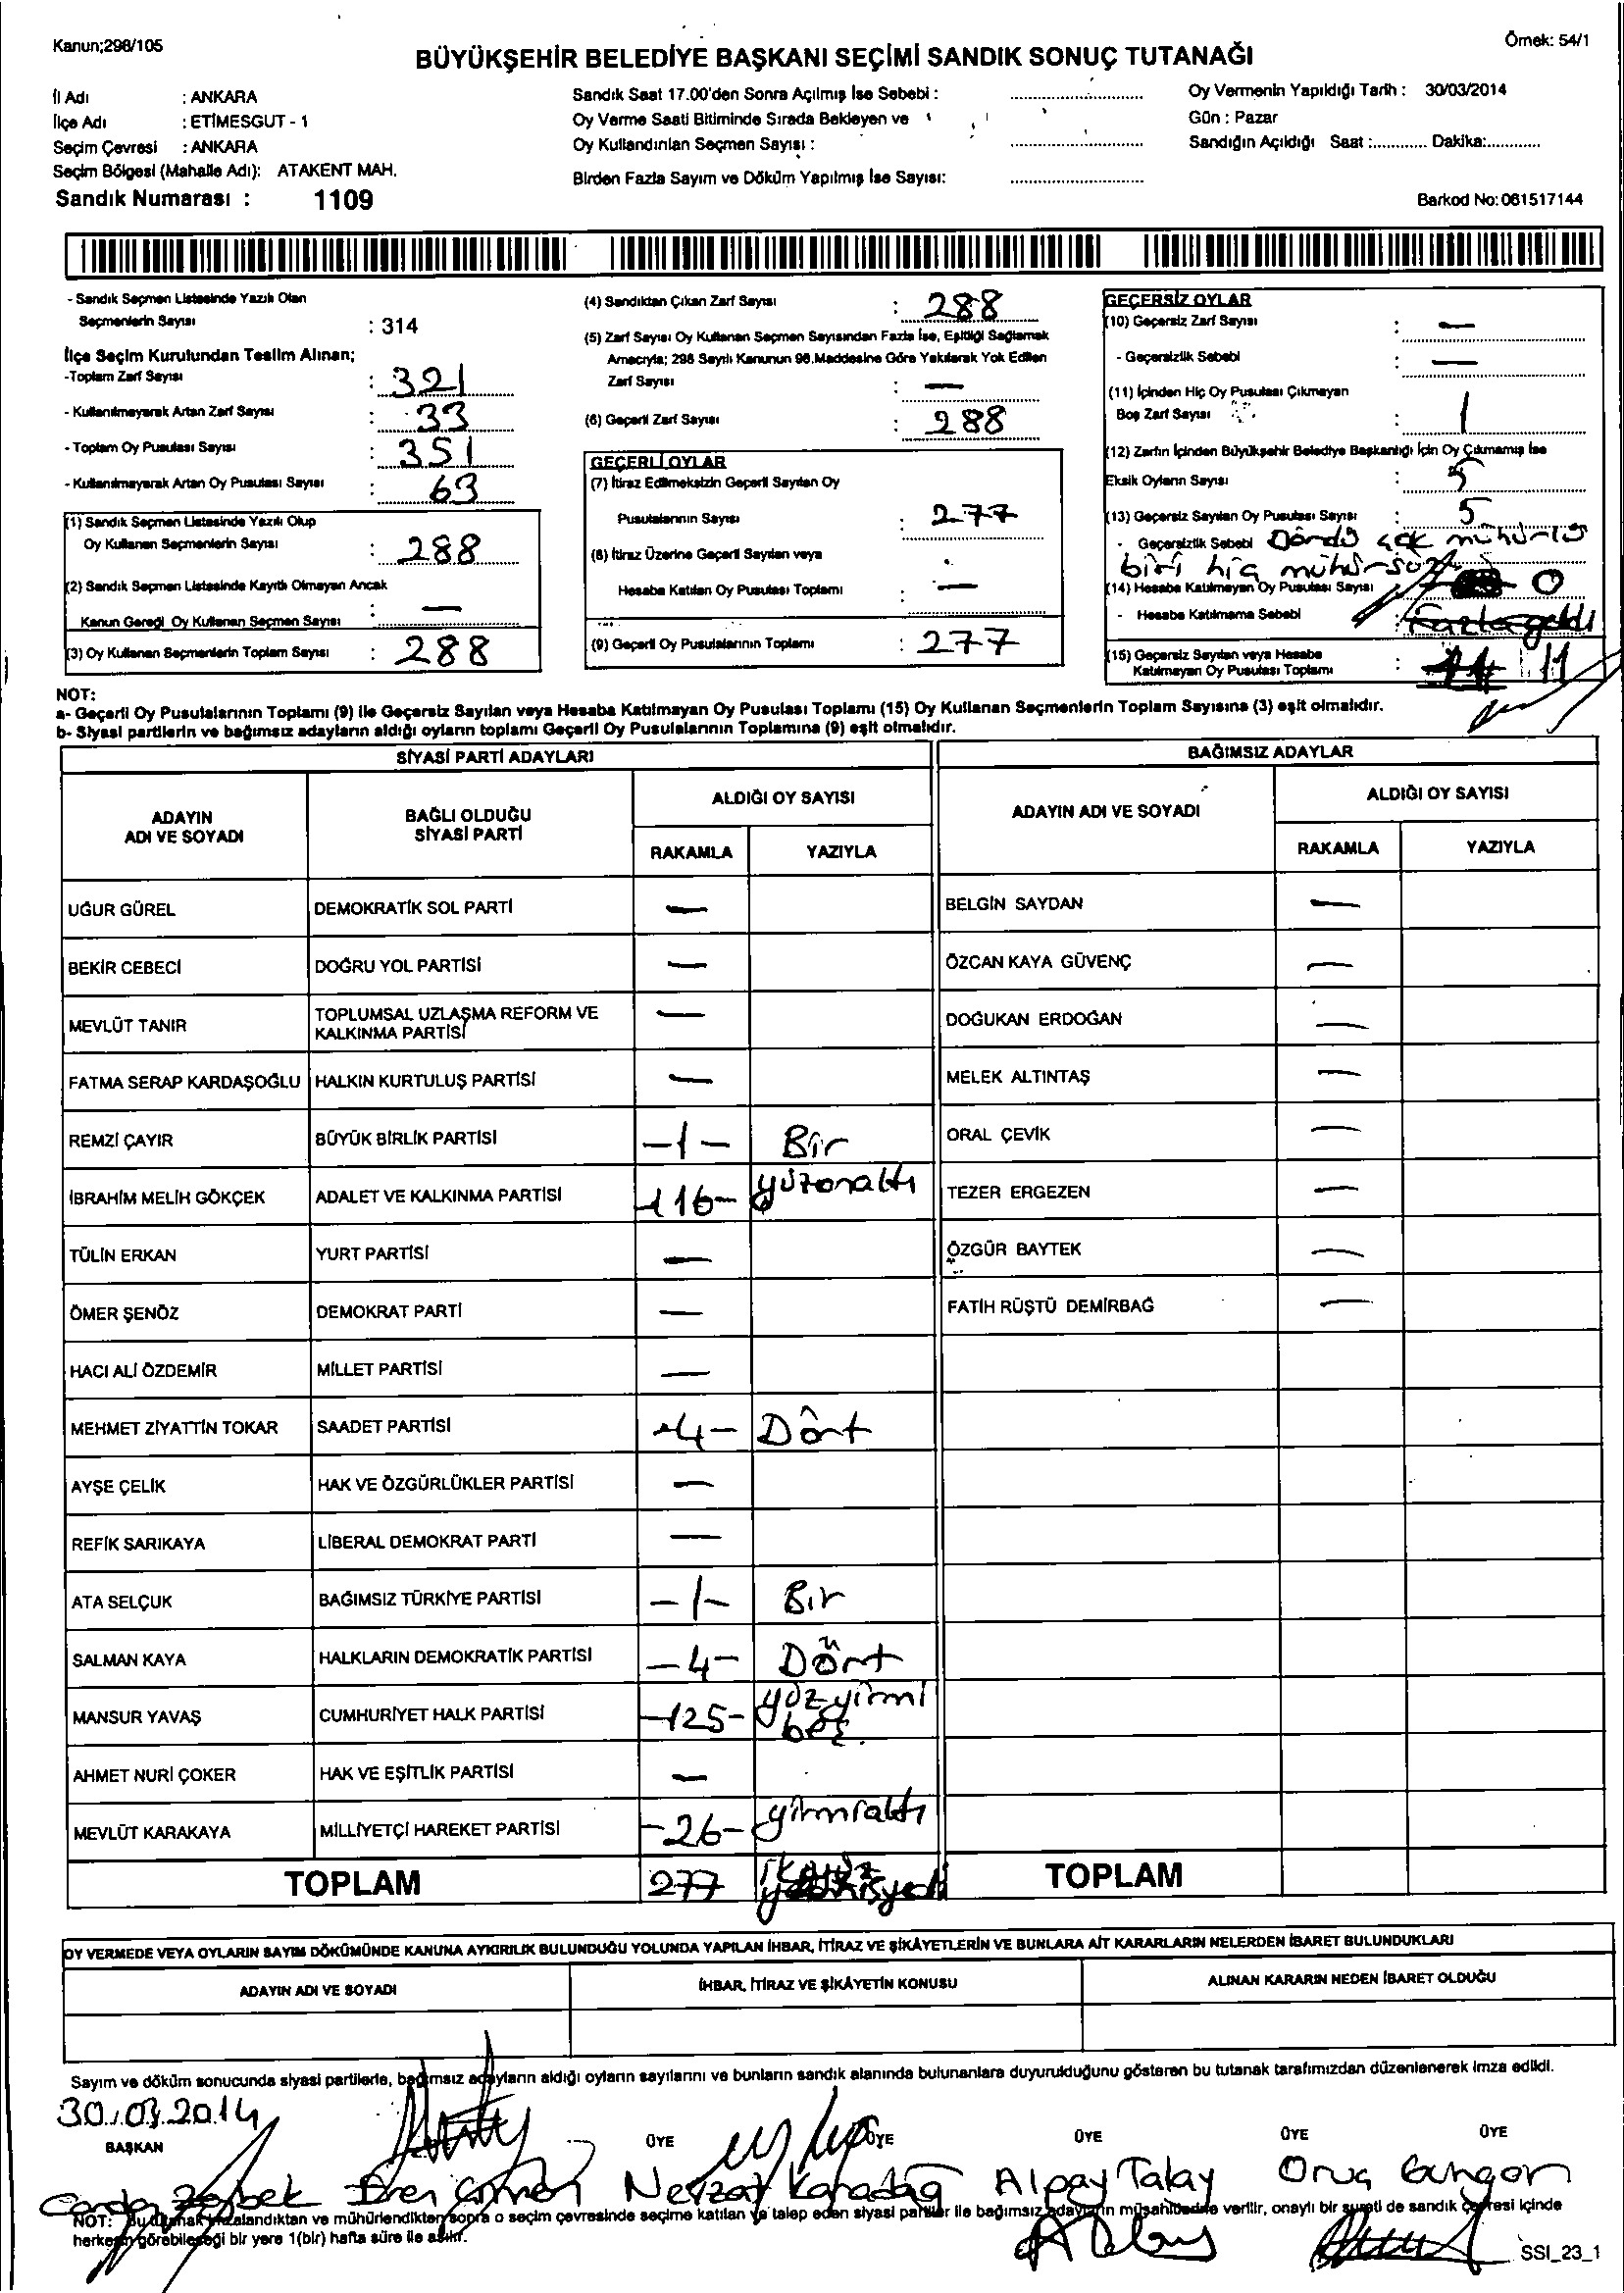 Kanun;298/105
Örnek: 54/1
BÜYÜKŞEHİR BELEDİYE BAŞKANI SEÇİMİ SANDIK SONUÇ TUTANAĞI
İl Adı : ANKARA
İlçe Adı : ETİMESGUT - 1
Seçim Çevresi : ANKARA
Seçim Bölgesi (Mahalle Adı): ATAKENT MAH.
Sandık Numarası : 1109
Sandık Saat 17.00'den Sonra Açılmış İse Sebebi :
Oy Verme Saati Bitiminde Sırada Bekleyen ve
Oy Kullandırılan Seçmen Sayısı :
Birden Fazla Sayım ve Döküm Yapılmış İse Sayısı:
Oy Vermenin Yapıldığı Tarih : 30/03/2014
Gün : Pazar
Sandığın Açıldığı Saat :............ Dakika:............
Barkod No: 061517144
- Sandık Seçmen Listesinde Yazılı Olan
Seçmenlerin Sayısı : 314
İlçe Seçim Kurulundan Teslim Alınan;
-Toplam Zarf Sayısı : 321
- Kullanılmayarak Artan Zarf Sayısı : 33
- Toplam Oy Pusulası Sayısı : 351
- Kullanılmayarak Artan Oy Pusulası Sayısı : 63
(1) Sandık Seçmen Listesinde Yazılı Olup
Oy Kullanan Seçmenlerin Sayısı : 288
(2) Sandık Seçmen Listesinde Kayıtlı Olmayan Ancak
Kanun Gereği Oy Kullanan Seçmen Sayısı : —
(3) Oy Kullanan Seçmenlerin Toplam Sayısı : 288
(4) Sandıktan Çıkan Zarf Sayısı : 288
(5) Zarf Sayısı Oy Kullanan Seçmen Sayısından Fazla İse, Eşitliği Sağlamak
Amacıyla; 298 Sayılı Kanunun 98.Maddesine Göre Yakılarak Yok Edilen
Zarf Sayısı : —
(6) Geçerli Zarf Sayısı : 288
GEÇERLİ OYLAR
(7) İtiraz Edilmeksizin Geçerli Sayılan Oy
Pusulalarının Sayısı : 277
(8) İtiraz Üzerine Geçerli Sayılan veya
Hesaba Katılan Oy Pusulası Toplamı : —
(9) Geçerli Oy Pusulalarının Toplamı : 277
GEÇERSİZ OYLAR
(10) Geçersiz Zarf Sayısı : —
- Geçersizlik Sebebi : —
(11) İçinden Hiç Oy Pusulası Çıkmayan
Boş Zarf Sayısı : 1
(12) Zarfın İçinden Büyükşehir Belediye Başkanlığı İçin Oy Çıkmamış İse
Eksik Oyların Sayısı : 5
(13) Geçersiz Sayılan Oy Pusulası Sayısı : 5
- Geçersizlik Sebebi Dördü çok mühürlü
biri hiç mühürsüz
(14) Hesaba Katılmayan Oy Pusulası Sayısı 0
- Hesaba Katılmama Sebebi : Fazla geldi
(15) Geçersiz Sayılan veya Hesaba
Katılmayan Oy Pusulası Toplamı : 11 11
NOT:
a- Geçerli Oy Pusulalarının Toplamı (9) ile Geçersiz Sayılan veya Hesaba Katılmayan Oy Pusulası Toplamı (15) Oy Kullanan Seçmenlerin Toplam Sayısına (3) eşit olmalıdır.
b- Siyasi partilerin ve bağımsız adayların aldığı oyların toplamı Geçerli Oy Pusulalarının Toplamına (9) eşit olmalıdır.
SİYASİ PARTİ ADAYLARI
ADAYIN ADI VE SOYADI
BAĞLI OLDUĞU SİYASİ PARTİ
ALDIĞI OY SAYISI
RAKAMLA YAZIYLA
UĞUR GÜREL DEMOKRATİK SOL PARTİ —
BEKİR CEBECİ DOĞRU YOL PARTİSİ —
MEVLÜT TANIR TOPLUMSAL UZLAŞMA REFORM VE KALKINMA PARTİSİ —
FATMA SERAP KARDAŞOĞLU HALKIN KURTULUŞ PARTİSİ —
REMZİ ÇAYIR BÜYÜK BİRLİK PARTİSİ -1- Bir
İBRAHİM MELİH GÖKÇEK ADALET VE KALKINMA PARTİSİ 116- yüzonaltı
TÜLİN ERKAN YURT PARTİSİ —
ÖMER ŞENÖZ DEMOKRAT PARTİ —
HACI ALİ ÖZDEMİR MİLLET PARTİSİ —
MEHMET ZİYATTİN TOKAR SAADET PARTİSİ -4- Dört
AYŞE ÇELİK HAK VE ÖZGÜRLÜKLER PARTİSİ —
REFİK SARIKAYA LİBERAL DEMOKRAT PARTİ —
ATA SELÇUK BAĞIMSIZ TÜRKİYE PARTİSİ -1- Bir
SALMAN KAYA HALKLARIN DEMOKRATİK PARTİSİ -4- Dört
MANSUR YAVAŞ CUMHURİYET HALK PARTİSİ -125- yüzyirmi beş.
AHMET NURİ ÇOKER HAK VE EŞİTLİK PARTİSİ —
MEVLÜT KARAKAYA MİLLİYETÇİ HAREKET PARTİSİ -26- yirmialtı
TOPLAM 277 ikiyüz yetmişyedi
BAĞIMSIZ ADAYLAR
ADAYIN ADI VE SOYADI
ALDIĞI OY SAYISI
RAKAMLA YAZIYLA
BELGİN SAYDAN —
ÖZCAN KAYA GÜVENÇ —
DOĞUKAN ERDOĞAN —
MELEK ALTINTAŞ —
ORAL ÇEVİK —
TEZER ERGEZEN —
ÖZGÜR BAYTEK —
FATİH RÜŞTÜ DEMİRBAĞ —
TOPLAM
OY VERMEDE VEYA OYLARIN SAYIM DÖKÜMÜNDE KANUNA AYKIRILIK BULUNDUĞU YOLUNDA YAPILAN İHBAR, İTİRAZ VE ŞİKÂYETLERİN VE BUNLARA AİT KARARLARIN NELERDEN İBARET BULUNDUKLARI
ADAYIN ADI VE SOYADI İHBAR, İTİRAZ VE ŞİKÂYETİN KONUSU ALINAN KARARIN NEDEN İBARET OLDUĞU
Sayım ve döküm sonucunda siyasi partilerle, bağımsız adayların aldığı oyların sayılarını ve bunların sandık alanında bulunanlara duyurulduğunu gösteren bu tutanak tarafımızdan düzenlenerek imza edildi.
30.03.2014
BAŞKAN ÜYE ÜYE ÜYE ÜYE ÜYE
Zeybek Eren Nevzat Karadağ Alpay Talay Oruç Güngör
NOT: Bu tutanak imzalandıktan ve mühürlendikten sonra o seçim çevresinde seçime katılan ve talep eden siyasi partiler ile bağımsız adayların müşahitlerine verilir, onaylı bir sureti de sandık çevresi içinde
herkesin görebileceği bir yere 1(bir) hafta süre ile asılır.
SSI_23_1